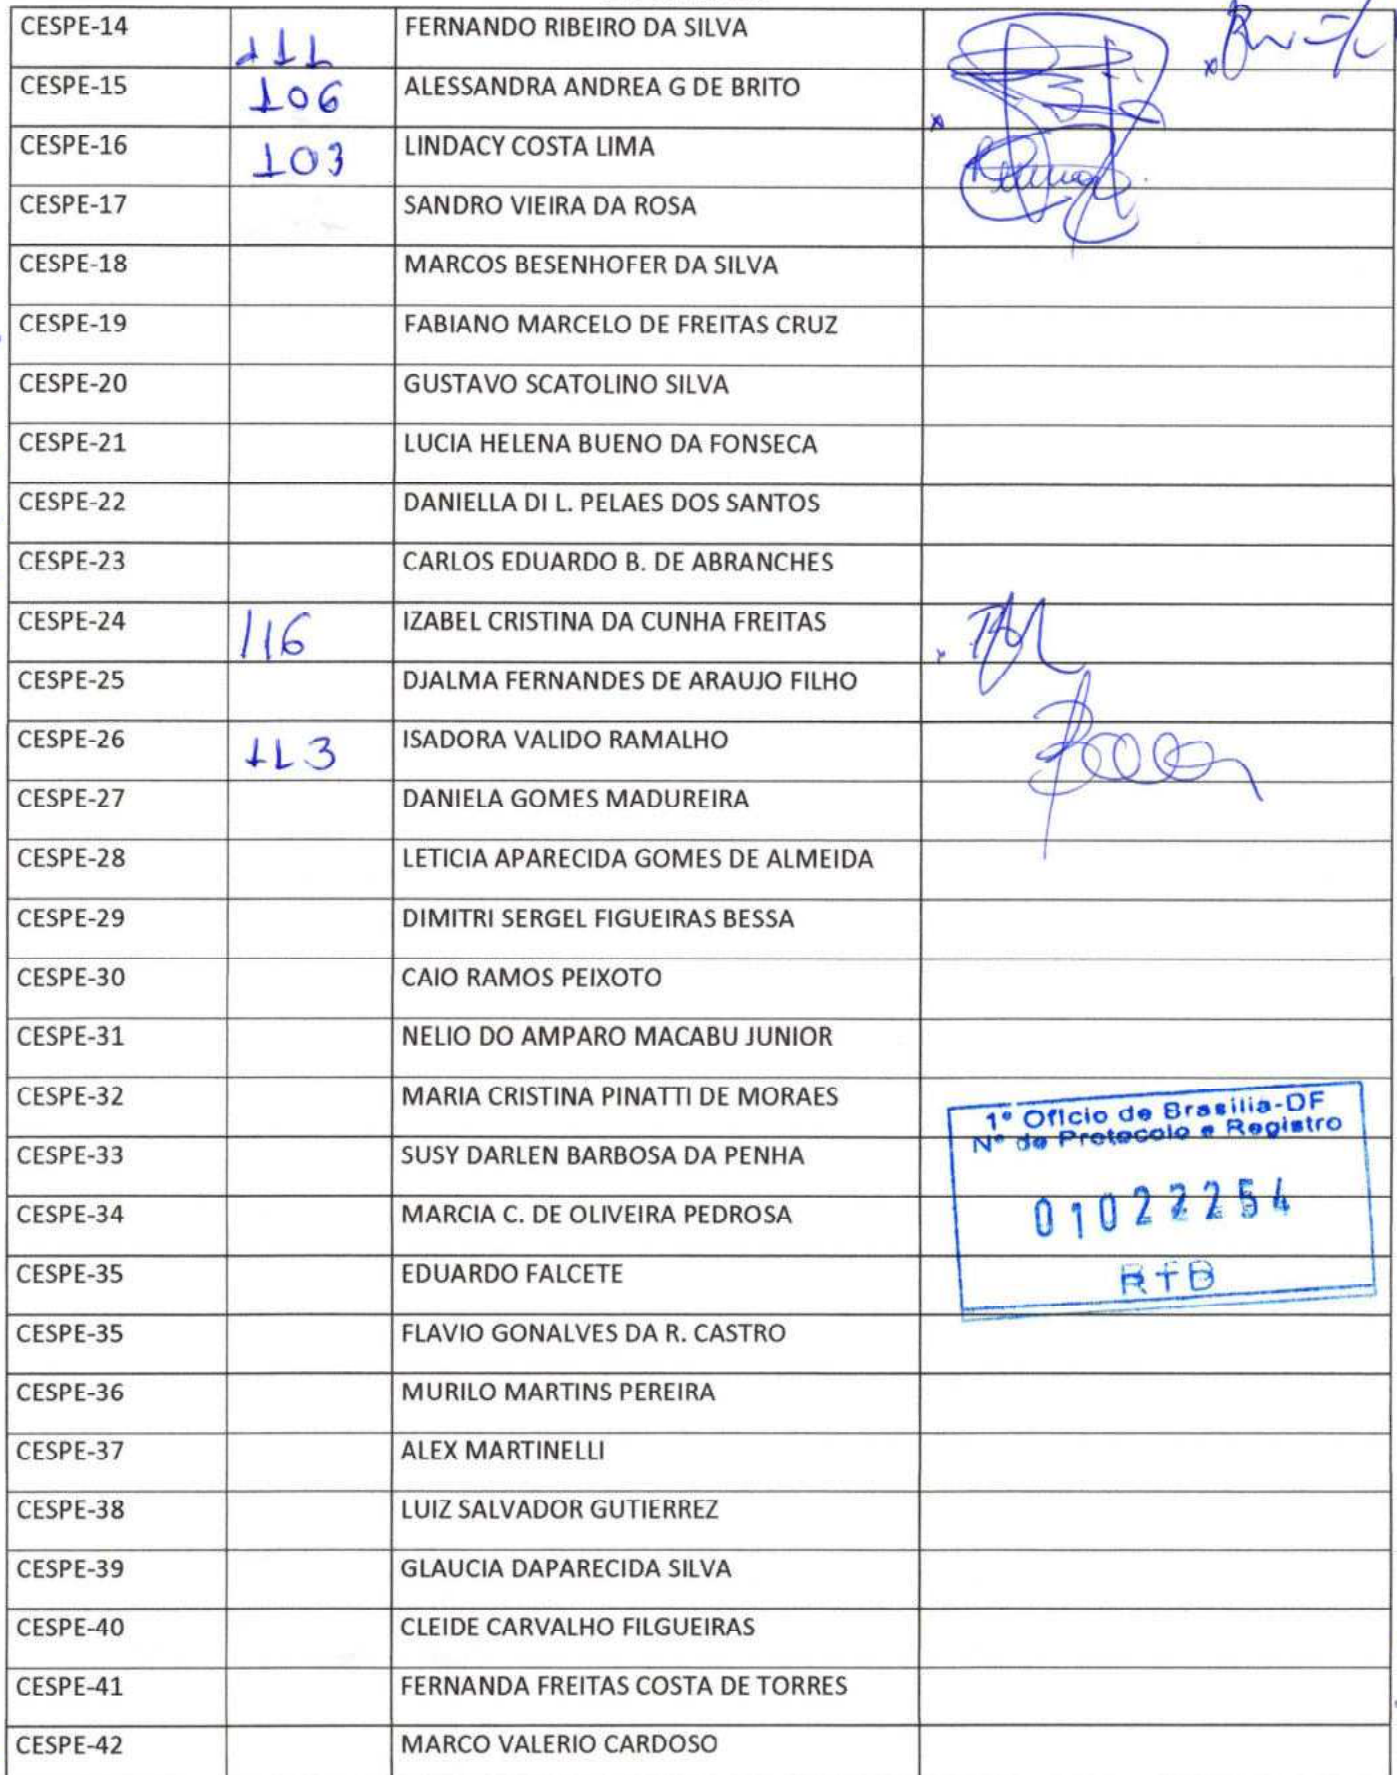 CESPE-14 111 FERNANDO RIBEIRO DA SILVA
CESPE-15 106 ALESSANDRA ANDREA G DE BRITO
CESPE-16 103 LINDACY COSTA LIMA
CESPE-17 SANDRO VIEIRA DA ROSA
CESPE-18 MARCOS BESENHOFER DA SILVA
CESPE-19 FABIANO MARCELO DE FREITAS CRUZ
CESPE-20 GUSTAVO SCATOLINO SILVA
CESPE-21 LUCIA HELENA BUENO DA FONSECA
CESPE-22 DANIELLA DI L. PELAES DOS SANTOS
CESPE-23 CARLOS EDUARDO B. DE ABRANCHES
CESPE-24 116 IZABEL CRISTINA DA CUNHA FREITAS
CESPE-25 DJALMA FERNANDES DE ARAUJO FILHO
CESPE-26 113 ISADORA VALIDO RAMALHO
CESPE-27 DANIELA GOMES MADUREIRA
CESPE-28 LETICIA APARECIDA GOMES DE ALMEIDA
CESPE-29 DIMITRI SERGEL FIGUEIRAS BESSA
CESPE-30 CAIO RAMOS PEIXOTO
CESPE-31 NELIO DO AMPARO MACABU JUNIOR
CESPE-32 MARIA CRISTINA PINATTI DE MORAES
1º Ofício de Brasília-DF
Nº de Protocolo e Registro
CESPE-33 SUSY DARLEN BARBOSA DA PENHA
CESPE-34 MARCIA C. DE OLIVEIRA PEDROSA
01022254
CESPE-35 EDUARDO FALCETE
RTB
CESPE-35 FLAVIO GONALVES DA R. CASTRO
CESPE-36 MURILO MARTINS PEREIRA
CESPE-37 ALEX MARTINELLI
CESPE-38 LUIZ SALVADOR GUTIERREZ
CESPE-39 GLAUCIA DAPARECIDA SILVA
CESPE-40 CLEIDE CARVALHO FILGUEIRAS
CESPE-41 FERNANDA FREITAS COSTA DE TORRES
CESPE-42 MARCO VALERIO CARDOSO